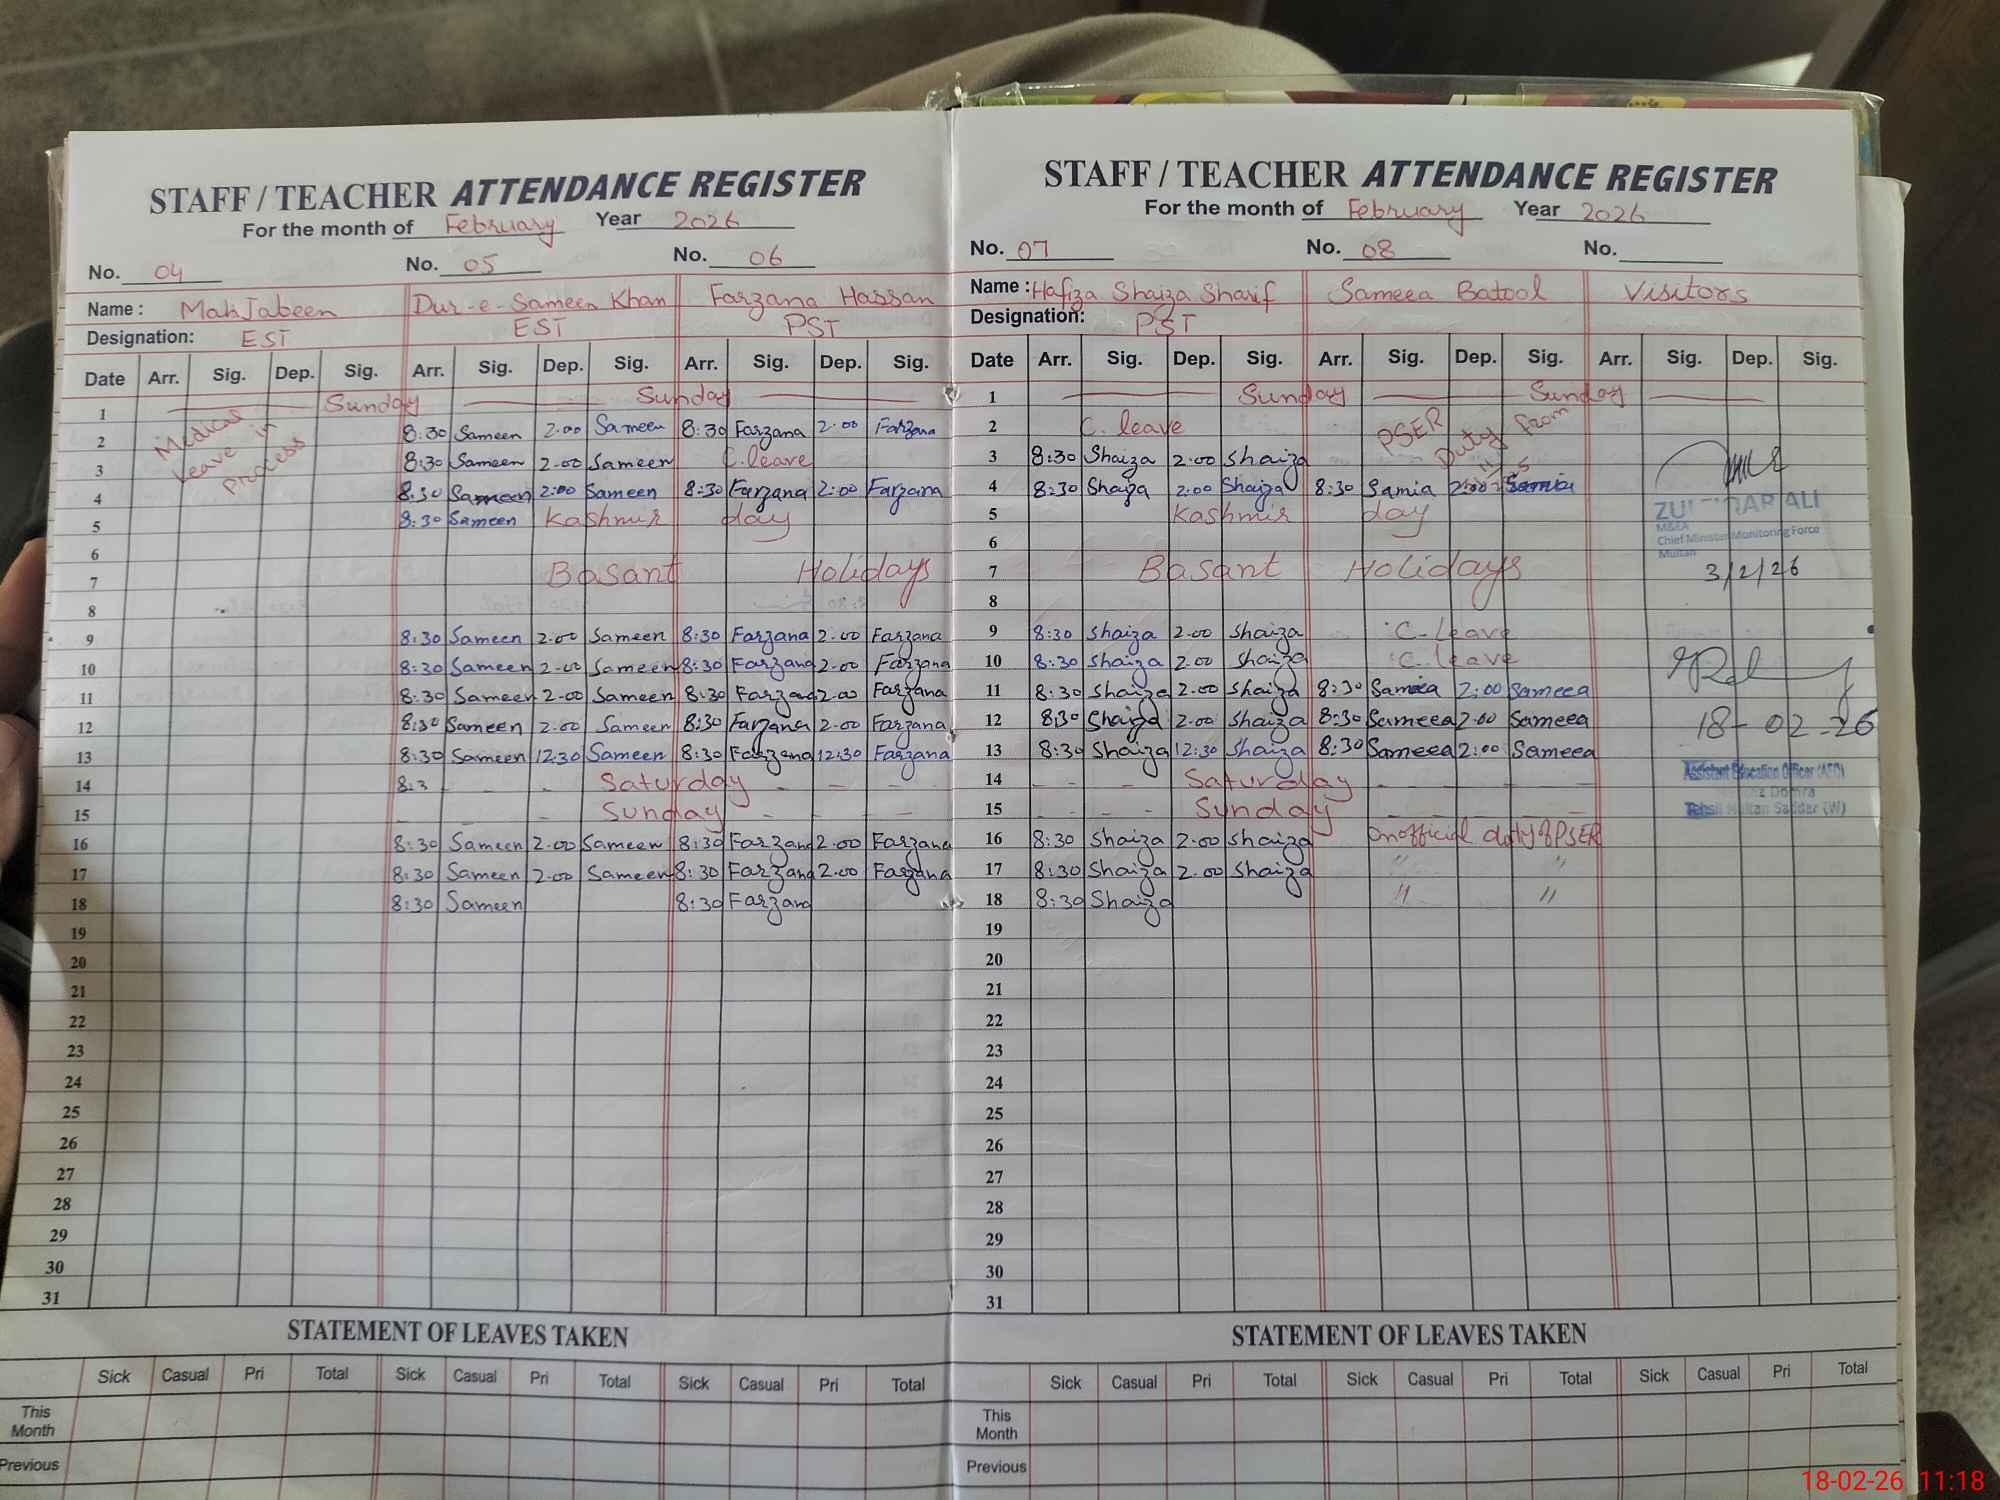 STAFF / TEACHER ATTENDANCE REGISTER
For the month of February Year 2026
No. 04 No. 05 No. 06
Name : MahJabeen Dur-e-Sameen Khan Farzana Hassan
Designation: EST EST PST
Date Arr. Sig. Dep. Sig. Arr. Sig. Dep. Sig. Arr. Sig. Dep. Sig.
1 Sunday Sunday
Medical Leave in Process
2 8:30 Sameen 2.00 Sameen 8:30 Farzana 2.00 Farzana
3 8:30 Sameen 2.00 Sameen C.leave
4 8:30 Sameen 2:00 Sameen 8:30 Farzana 2:00 Farzana
5 8.30 Sameen Kashmir day
6
7 Basant Holidays
8
9 8:30 Sameen 2.00 Sameen 8:30 Farzana 2.00 Farzana
10 8:30 Sameen 2.00 Sameen 8:30 Farzana 2.00 Farzana
11 8:30 Sameen 2.00 Sameen 8:30 Farzana 2.00 Farzana
12 8:30 Sameen 2.00 Sameen 8:30 Farzana 2.00 Farzana
13 8:30 Sameen 12.30 Sameen 8:30 Farzana 12:30 Farzana
14 8:3 - - - Saturday - - -
15 - - - Sunday - - -
16 8:30 Sameen 2.00 Sameen 8:30 Farzana 2.00 Farzana
17 8:30 Sameen 2.00 Sameen 8:30 Farzana 2.00 Farzana
18 8:30 Sameen 8:30 Farzana
19
20
21
22
23
24
25
26
27
28
29
30
31
STATEMENT OF LEAVES TAKEN
Sick Casual Pri Total Sick Casual Pri Total Sick Casual Pri Total
This Month
Previous
STAFF / TEACHER ATTENDANCE REGISTER
For the month of February Year 2026
No. 07 No. 08 No.
Name : Hafiza Shaiza Sharif Sameea Batool Visitors
Designation: PST
Date Arr. Sig. Dep. Sig. Arr. Sig. Dep. Sig. Arr. Sig. Dep. Sig.
1 Sunday Sunday
2 C. leave PSER Duty from
3 8:30 Shaiza 2.00 Shaiza
4 8:30 Shaiza 2:00 Shaiza 8:30 Samia 2:00 Samia
5 Kashmir day
6
7 Basant Holidays
8
9 8:30 Shaiza 2.00 Shaiza C. leave
10 8:30 Shaiza 2.00 Shaiza C. leave
11 8:30 Shaiza 2.00 Shaiza 8:30 Samia 2:00 Sameea
12 8:30 Shaiza 2.00 Shaiza 8:30 Sameea 2.00 Sameea
13 8:30 Shaiza 12:30 Shaiza 8:30 Sameea 2:00 Sameea
14 - - - Saturday - - - -
15 - - - Sunday - - - -
16 8:30 Shaiza 2.00 Shaiza On official duty of PSER
17 8:30 Shaiza 2.00 Shaiza " "
18 8:30 Shaiza " "
19
20
21
22
23
24
25
26
27
28
29
30
31
ALI
M&EA
Chief Minister Monitoring Force
Multan
3/2/26
18-02-26
Assistant Education Officer (AEO)
Domra
Tehsil Multan Saddar (W)
STATEMENT OF LEAVES TAKEN
Sick Casual Pri Total Sick Casual Pri Total Sick Casual Pri Total
This Month
Previous
18-02-26 11:18